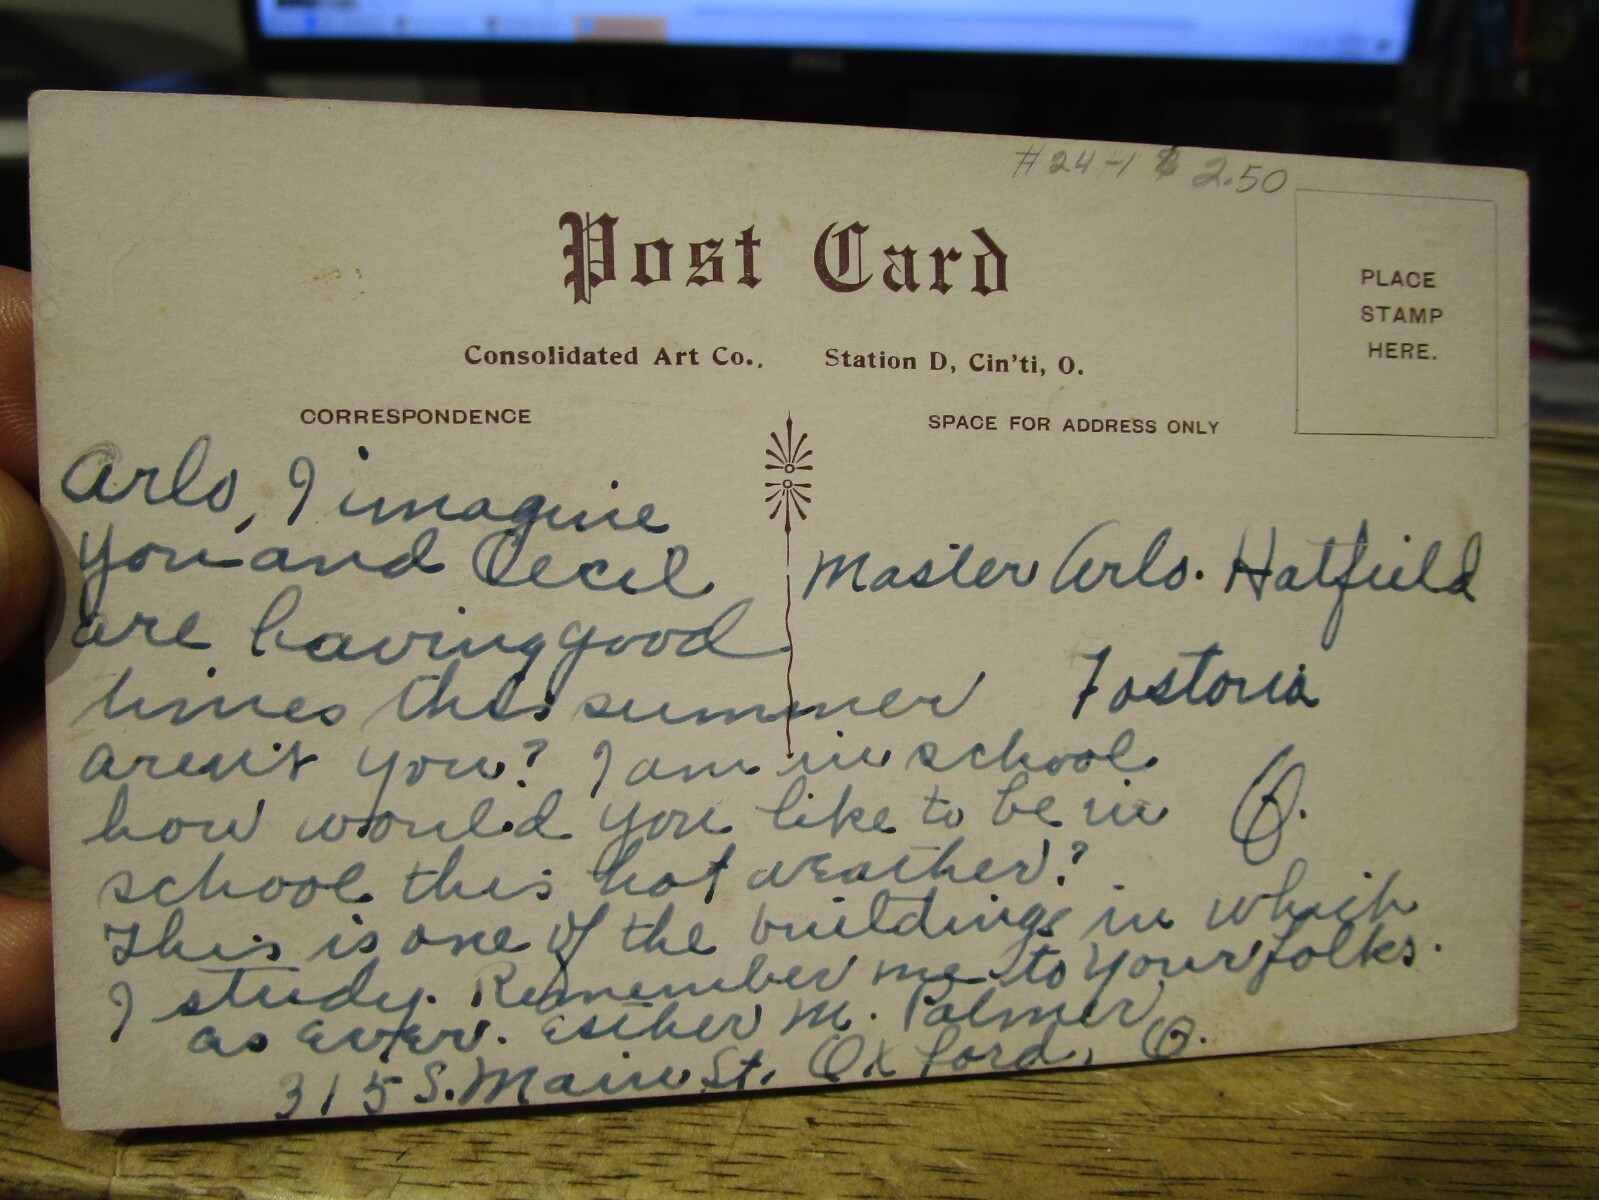 #24-1 $ 2.50
Post Card
PLACE
STAMP
HERE.
Consolidated Art Co., Station D, Cin'ti, O.
CORRESPONDENCE
SPACE FOR ADDRESS ONLY
Arlo, I imagine
you and Cecil
are having good
times this summer
aren't you? I am in school
how would you like to be in
school this hot weather?
This is one of the buildings in which
I study. Remember me to your folks.
as ever. Esther M. Palmer
315 S. Main St. Oxford, O.
Master Arlo. Hatfield
Fostoria
O.